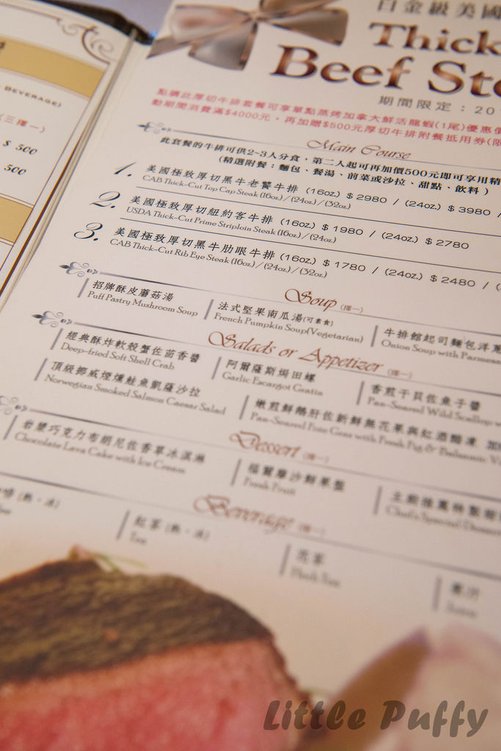 白金級美國
Thick
Beef Ste
期間限定：20
BEVERAGE)
(三擇一)
$ 500
$ 500
點購此厚切牛排套餐可享單點蒸烤加拿大鮮活龍蝦(1尾)優惠
動期間消費滿$4000元，再加贈$500元厚切牛排附餐抵用券(限
Main Course
此套餐的牛排可供2~3人分食，第二人起可再加價500元即可享用精
(精選附餐：麵包、餐湯、前菜或沙拉、甜點、飲料）
1. 美國極致厚切黑牛老饕牛排 (16oz) $ 2980 / (24oz) $ 3980
CAB Thick-Cut Top Cap Steak (16oz) / (24oz) / (32oz)
2. 美國極致厚切紐約客牛排 (16oz) $ 1980 / (24oz) $ 2780
USDA Thick-Cut Prime Striploin Steak (16oz) / (24oz)
3. 美國極致厚切黑牛肋眼牛排 (16oz) $ 1780 / (24oz) $ 2480 /
CAB Thick-Cut Rib Eye Steak (16oz) / (24oz) / (32oz)
Soup (擇一)
招牌酥皮蘑菇湯 法式堅果南瓜湯(可素食) 牛排館起司麵包洋蔥
Puff Pastry Mushroom Soup French Pumpkin Soup(Vegetarian) Onion Soup with Parmesan
Salads or Appetizer (擇一)
經典酥炸軟殼蟹佐茴香醬 阿爾薩斯焗田螺 香煎干貝佐魚子醬
Deep-fried Soft Shell Crab Garlic Escargot Gratin Pan-Seared Wild Scallop
頂級挪威煙燻鮭魚凱薩沙拉 嫩煎鮮鵝肝佐新鮮無花果與紅酒醋凍
Norwegian Smoked Salmon Caesar Salad Pan-Seared Foie Gras with Fresh Fig & Balsamic
Dessert (擇一)
岩漿巧克力布朗尼佐香草冰淇淋 福爾摩沙鮮果盤 主廚推薦特製甜
Chocolate Lava Cake with Ice Cream Fresh Fruit Chef's Special Dessert
Beverage (擇一)
紅茶 (熱、冰) 花茶
Tea Herb Tea
Little Puffy